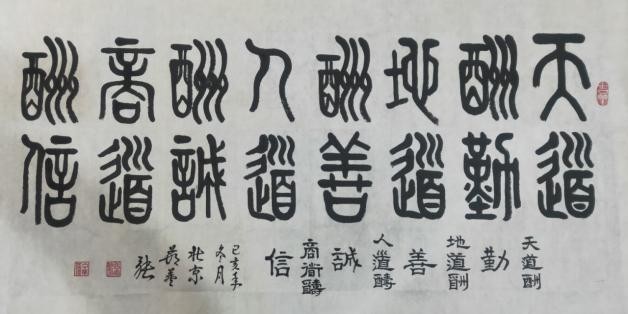 天道
酬勤
地道
酬善
人道
酬誠
商道
酬信
天道酬
勤
地道酬
善
人道醻
誠
商衜醻
信
己亥年
冬月
北京